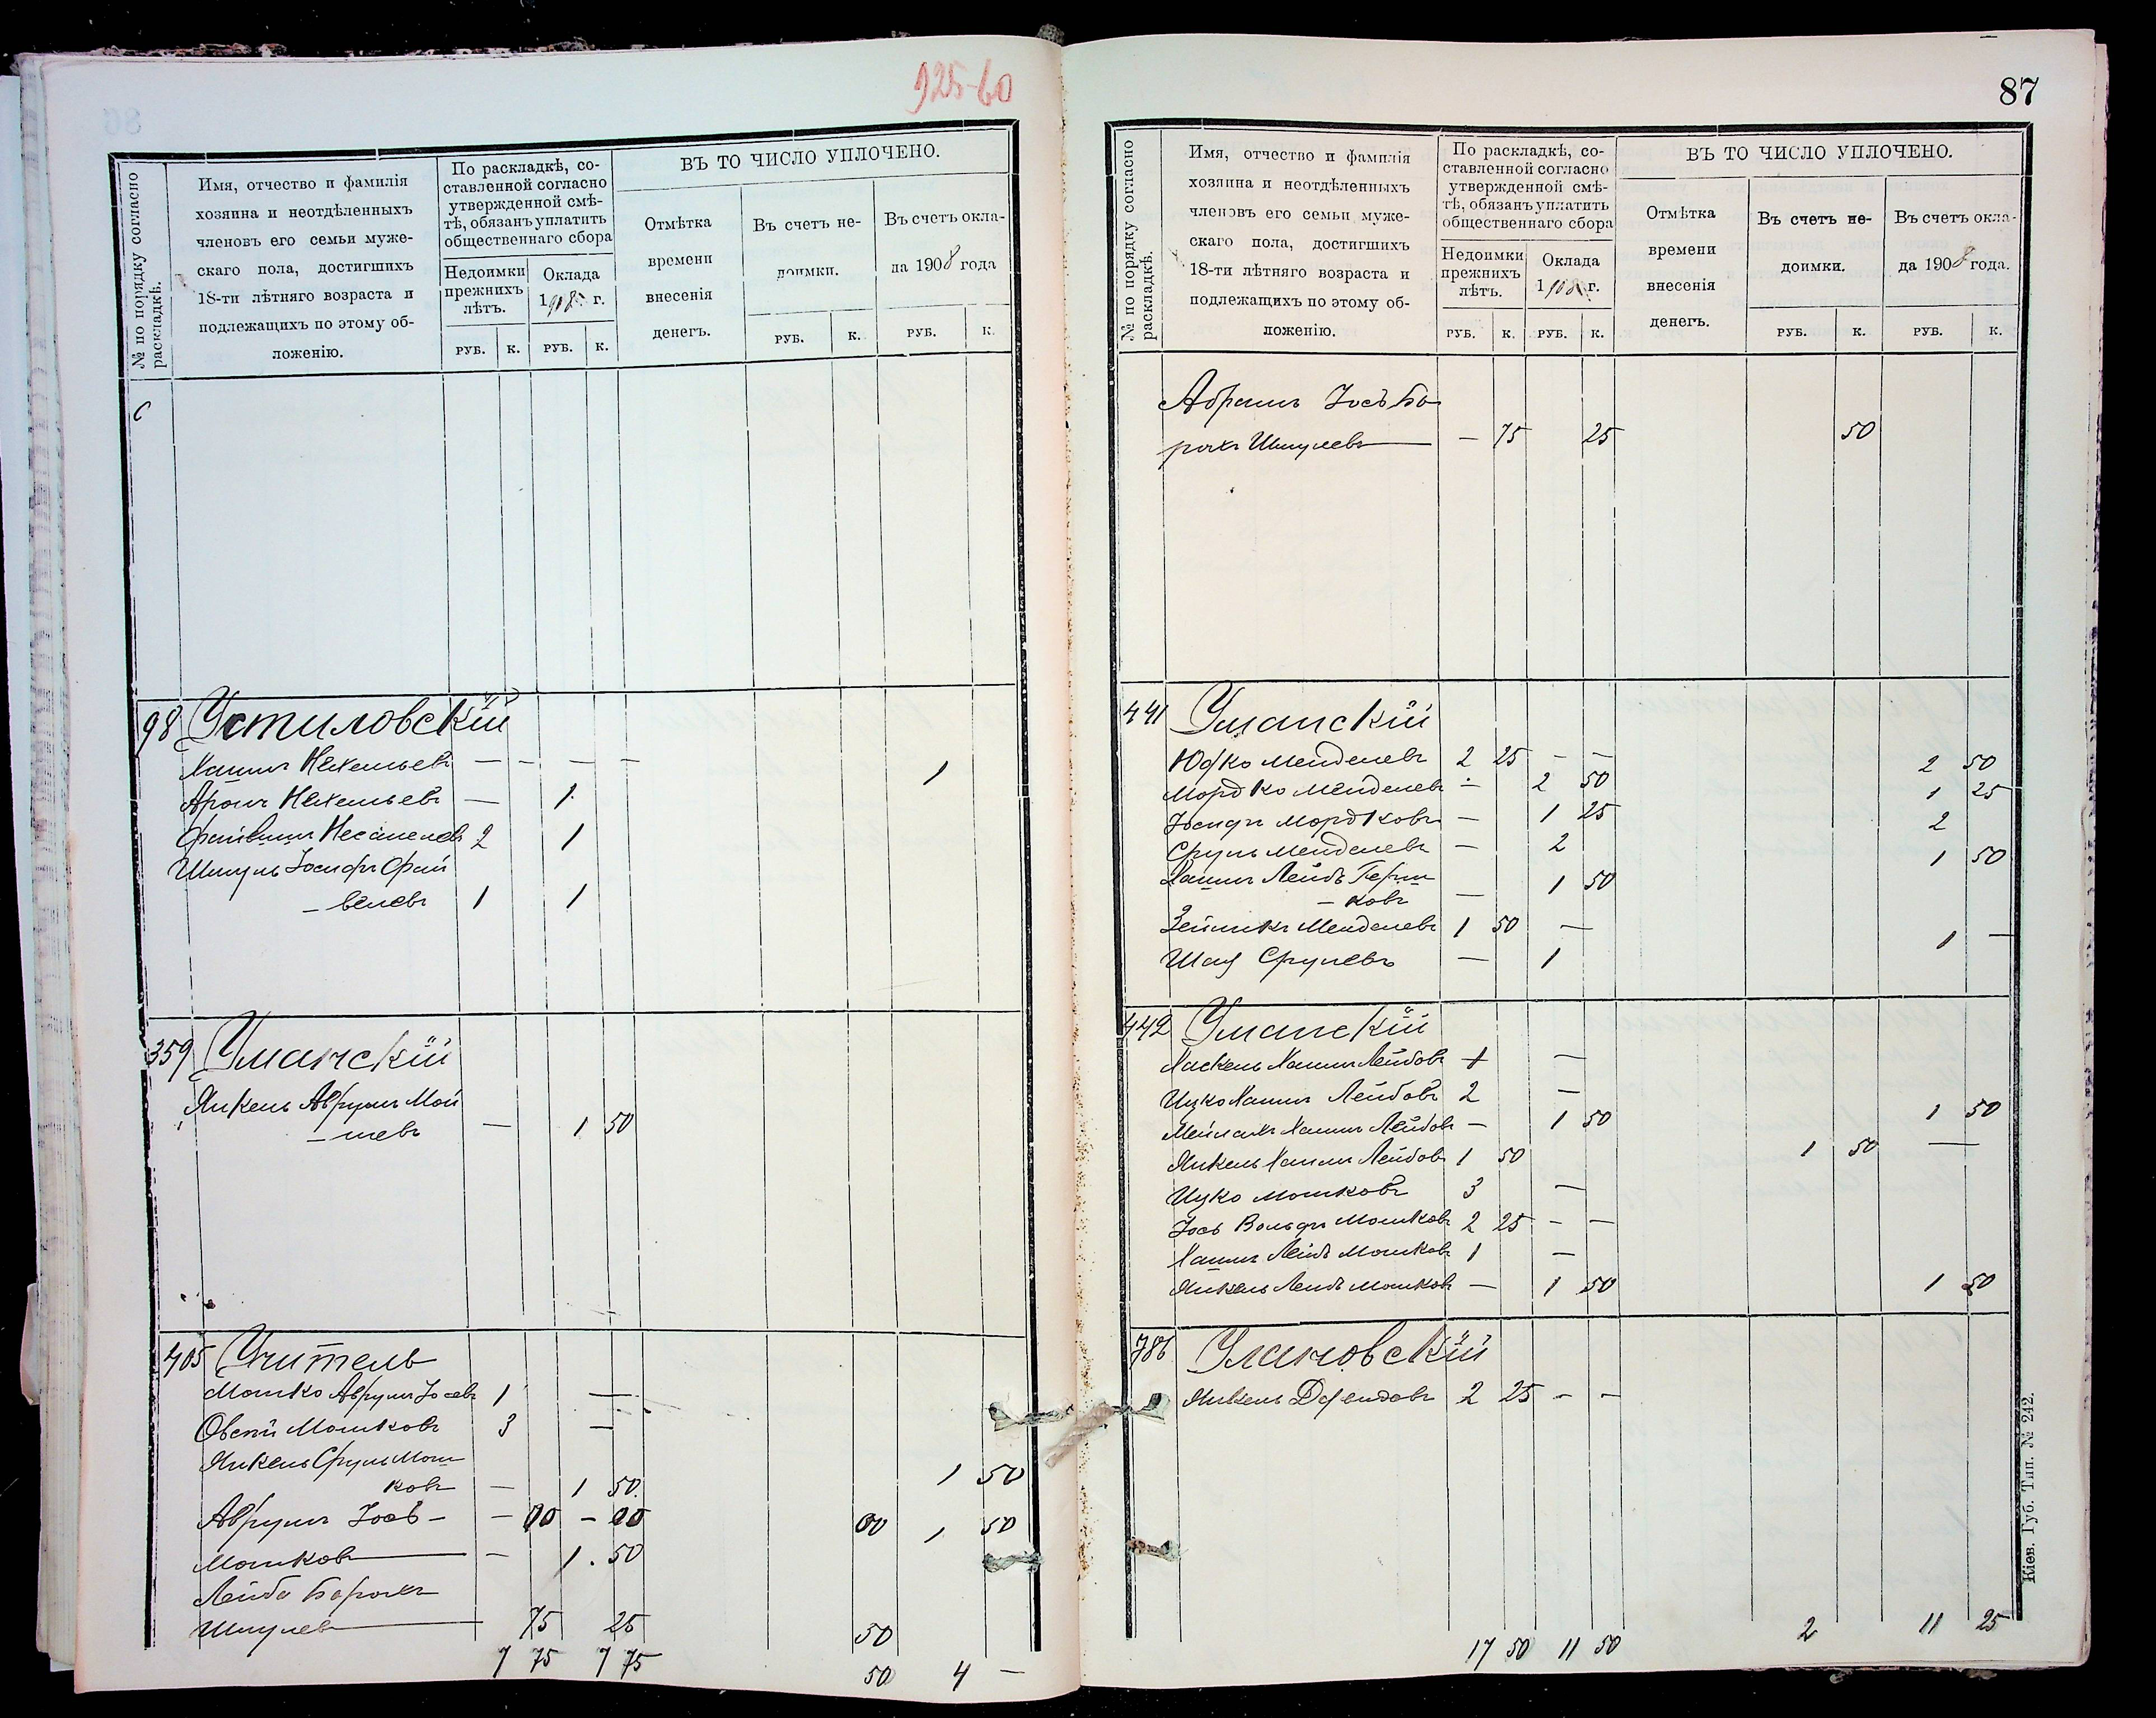 925-60
№ по порядку согласно раскладкѣ.
Имя, отчество и фамилія
хозяина и неотдѣленныхъ
членовъ его семьи муже-
скаго пола, достигшихъ
18-ти лѣтняго возраста и
подлежащихъ по этому об-
ложенію.
По раскладкѣ, со-
ставленной согласно
утвержденной смѣ-
тѣ, обязанъ уплатить
общественнаго сбора
Недоимки прежнихъ лѣтъ.
Оклада 1908 г.
РУБ. К. РУБ. К.
ВЪ ТО ЧИСЛО УПЛОЧЕНО.
Отмѣтка
времени
внесенія
денегъ.
Въ счетъ не-
доимки.
Въ счетъ окла-
да 1908 года
РУБ. К. РУБ. К.
98 Устиловскій
Хаимъ Нехемьевъ — — — — 1
Аронъ Нехемьевъ — 1
Файвишъ 2 1
Шмуль Іосифъ Фай
—велевъ 1 1
359 Уманскій
Янкель Аврумъ Мой
—шевъ — 1 50
405 Учитель
Мошко Аврумъ Іосевъ 1 —
Овсей Мошковъ 3 —
Янкель Сруль Мош
ковъ — 1 50 1 50
Аврумъ Іось- —
Мошковъ — 1 50 1 50
Лейба Борохъ
Шмулевъ 75 25 50
7 75 7 75 50 4 —
87
№ по порядку согласно раскладкѣ.
Имя, отчество и фамилія
хозяина и неотдѣленныхъ
членовъ его семьи муже-
скаго пола, достигшихъ
18-ти лѣтняго возраста и
подлежащихъ по этому об-
ложенію.
По раскладкѣ, со-
ставленной согласно
утвержденной смѣ-
тѣ, обязанъ уплатить
общественнаго сбора
Недоимки прежнихъ лѣтъ.
Оклада 1908 г.
РУБ. К. РУБ. К.
ВЪ ТО ЧИСЛО УПЛОЧЕНО.
Отмѣтка
времени
внесенія
денегъ.
Въ счетъ не-
доимки.
Въ счетъ окла-
да 1908 года.
РУБ. К. РУБ. К.
Абрамъ Іось Бо
рохъ Шмулевъ — 75 25 50
441 Уманскій
Юдко Менделевъ 2 25 — — 2 50
Мордко Менделевъ — 2 50 1 25
Іосифъ Мордковъ — 1 25 2
Сруль Менделевъ — 2 1 50
Хаимъ Лейбъ Герш
—ковъ — 1 50
Зейликъ Менделевъ 1 50 — 1 —
Шая Срулевъ — 1
442 Уманскій
Хаскель Хаимъ Лейбовъ 1 —
Ицко Хаимъ Лейбовъ 2 —
Мейлахъ Хаимъ Лейбовъ — 1 50 1 50
Янкель Хаимъ Лейбовъ 1 50 1 50 —
Ицко Мошковъ 3 —
Іось Вольфъ Мошковъ 2 25 — —
Хаимъ Лейбъ Мошковъ 1 —
Янкель Лейбъ Мошковъ — 1 50 1 50
786 Улановскій
Янкель 2 25 — —
17 50 11 50 2 11 25
Кіев. Губ. Тип. № 242.